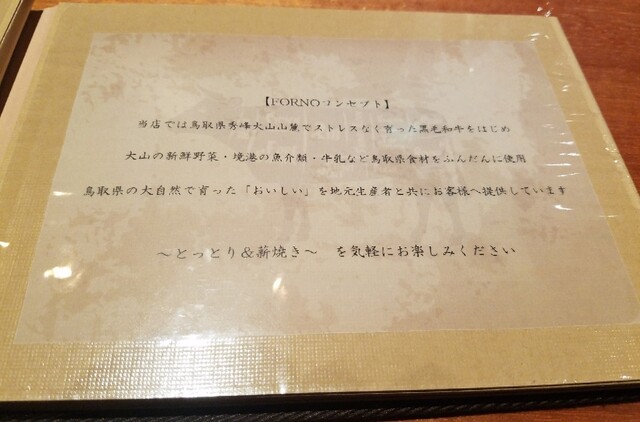 【FORNOコンセプト】
当店では鳥取県秀峰大山山麓でストレスなく育った黒毛和牛をはじめ
大山の新鮮野菜・境港の魚介類・牛乳など鳥取県食材をふんだんに使用
鳥取県の大自然で育った「おいしい」を地元生産者と共にお客様へ提供しています
～とっとり＆薪焼き～　を気軽にお楽しみください